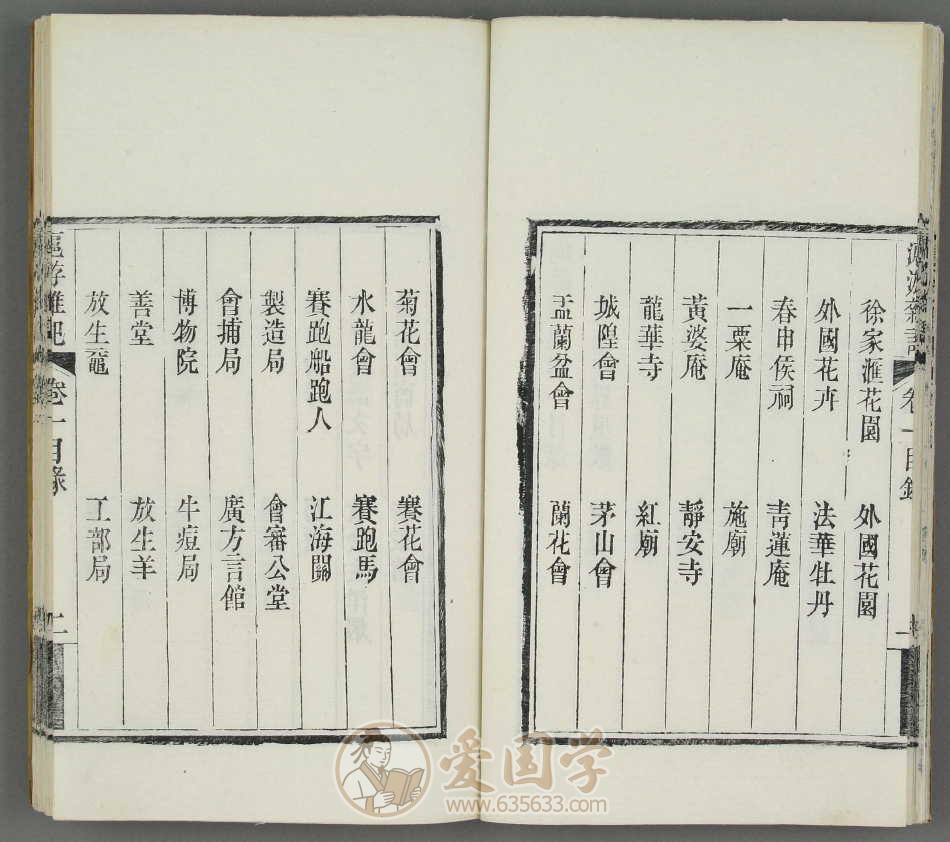 徐家滙花園 外國花園
外國花卉 法華牡丹
春申侯祠 青蓮庵
一粟庵 施廟
黃婆庵 靜安寺
龍華寺 紅廟
城隍會 茅山會
盂蘭盆會 蘭花會
菊花會 賽花會
水龍會 賽跑馬
賽跑船跑人 江海關
製造局 會審公堂
會捕局 廣方言館
博物院 牛痘局
善堂 放生羊
放生黿 工部局
卷一目錄
二
爱国学
www.635633.com